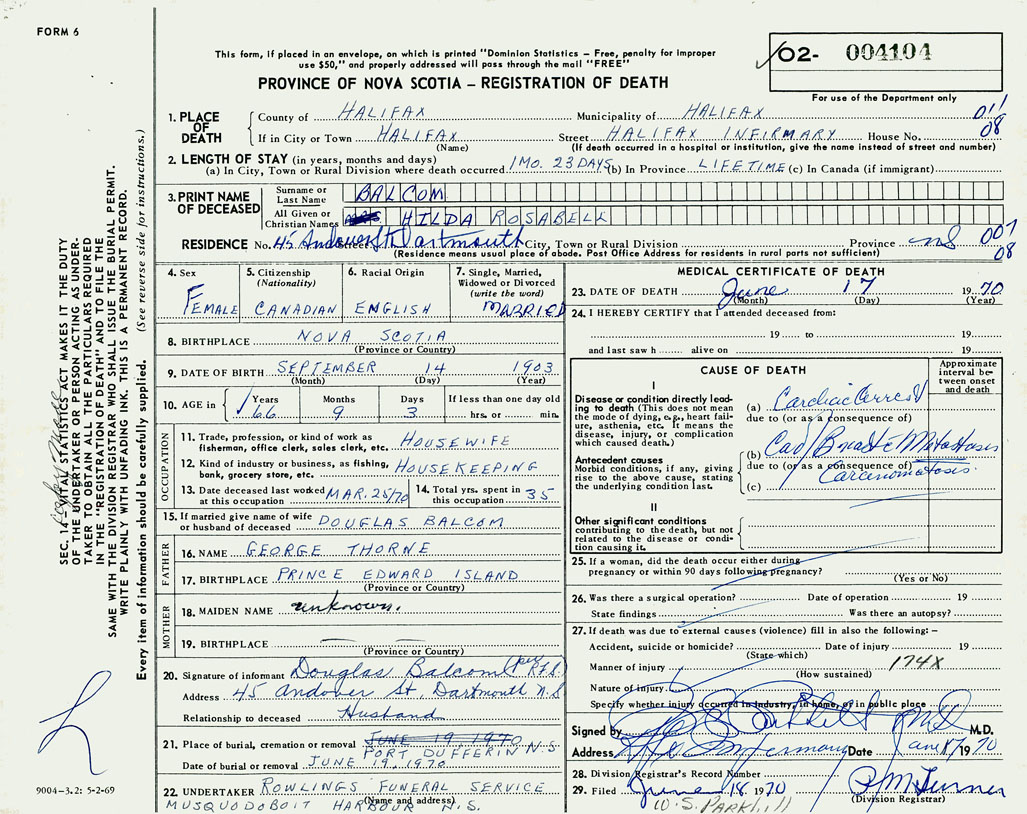 FORM 6
This form, if placed in an envelope, on which is printed "Dominion Statistics – Free, penalty for improper
use $50," and properly addressed will pass through the mail "FREE"
O2- 004104
For use of the Department only
PROVINCE OF NOVA SCOTIA – REGISTRATION OF DEATH
1. PLACE OF DEATH
County of HALIFAX Municipality of HALIFAX 011
If in City or Town HALIFAX Street HALIFAX INFIRMARY House No. 08
(Name) (If death occurred in a hospital or institution, give the name instead of street and number)
2. LENGTH OF STAY (in years, months and days)
(a) In City, Town or Rural Division where death occurred 1 MO. 23 DAYS (b) In Province LIFETIME (c) In Canada (if immigrant)
3. PRINT NAME OF DECEASED
Surname or Last Name BALCOM
All Given or Christian Names HILDA ROSABELL
RESIDENCE No. 45 Andover St Dartmouth City, Town or Rural Division Province NS 007
(Residence means usual place of abode. Post Office Address for residents in rural parts not sufficient) 08
4. Sex FEMALE
5. Citizenship (Nationality) CANADIAN
6. Racial Origin ENGLISH
7. Single, Married, Widowed or Divorced (write the word) MARRIED
8. BIRTHPLACE NOVA SCOTIA
(Province or Country)
9. DATE OF BIRTH SEPTEMBER 14 1903
(Month) (Day) (Year)
10. AGE in Years 66 Months 9 Days 3 If less than one day old hrs. or min.
OCCUPATION
11. Trade, profession, or kind of work as fisherman, office clerk, sales clerk, etc. HOUSEWIFE
12. Kind of industry or business, as fishing, bank, grocery store, etc. HOUSEKEEPING
13. Date deceased last worked at this occupation MAR. 25/70
14. Total yrs. spent in this occupation 35
15. If married give name of wife or husband of deceased DOUGLAS BALCOM
FATHER
16. NAME GEORGE THORNE
17. BIRTHPLACE PRINCE EDWARD ISLAND
(Province or Country)
MOTHER
18. MAIDEN NAME unknown.
19. BIRTHPLACE
(Province or Country)
20. Signature of informant Douglas Balcom (per
Address 45 Andover St. Dartmouth N.S
Relationship to deceased Husband
21. Place of burial, cremation or removal JUNE 19 1970
PORT DUFFERIN N.S.
Date of burial or removal JUNE 19, 1970
22. UNDERTAKER ROWLINGS FUNERAL SERVICE
(Name and address)
MUSQUODOBOIT HARBOUR N.S.
MEDICAL CERTIFICATE OF DEATH
23. DATE OF DEATH June 17 1970
(Month) (Day) (Year)
24. I HEREBY CERTIFY that I attended deceased from:
19 to 19
and last saw h alive on 19
CAUSE OF DEATH
Approximate interval between onset and death
I
Disease or condition directly leading to death (This does not mean the mode of dying, e.g., heart failure, asthenia, etc. It means the disease, injury, or complication which caused death.)
(a) Cardiac arrest
due to (or as a consequence of)
Antecedent causes
Morbid conditions, if any, giving rise to the above cause, stating the underlying condition last.
(b) Ca of Breast Metastasis
due to (or as a consequence of)
(c) Carcinomatosis.
II
Other significant conditions
contributing to the death, but not related to the disease or condition causing it.
25. If a woman, did the death occur either during
pregnancy or within 90 days following pregnancy?
(Yes or No)
26. Was there a surgical operation? Date of operation 19
State findings Was there an autopsy?
27. If death was due to external causes (violence) fill in also the following: –
Accident, suicide or homicide? Date of injury 19
(State which)
Manner of injury 174X
(How sustained)
Nature of injury
Specify whether injury occurred in industry, in home, or in public place
Signed by M.D.
Address Hfx Infirmary Date June 17 1970
28. Division Registrar's Record Number
29. Filed June 18 1970 P M Turner
(Division Registrar)
W.S. PARKHILL
SEC. 14 – VITAL STATISTICS ACT MAKES IT THE DUTY
OF THE UNDERTAKER OR PERSON ACTING AS UNDER-
TAKER TO OBTAIN ALL THE PARTICULARS REQUIRED
IN THE "REGISTRATION OF DEATH" AND TO FILE THE
SAME WITH THE DIVISION REGISTRAR WHO SHALL ISSUE THE BURIAL PERMIT.
WRITE PLAINLY WITH UNFADING INK. THIS IS A PERMANENT RECORD.
Every item of information should be carefully supplied. (See reverse side for instructions.)
9004-3.2: 5-2-69